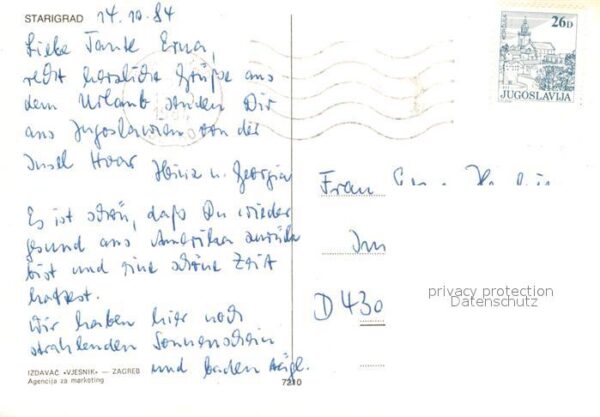 STARIGRAD 14.10.84
Liebe Tante Erna,
recht herzliche Grüße aus
dem Urlaub senden Dir
aus Jugoslawien von der
Insel Hvar Heinz u. Georgia
Es ist schön, daß Du wieder
gesund aus Amerika zurück
bist und eine schöne Zeit
hattest.
Wir haben hier noch
strahlenden Sonnenschein
und baden tägl.
IZDAVAČ «VJESNIK» — ZAGREB
Agencija za marketing
7210
26D
JUGOSLAVIJA
Frau
Im
D 430
privacy protection
Datenschutz